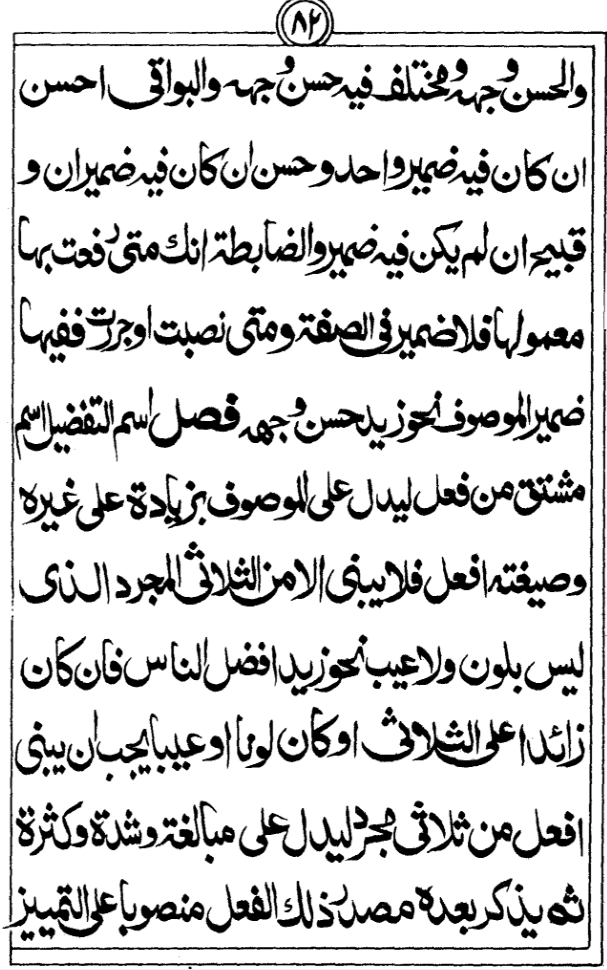 ٨٢
والحسن وجهه ومختلف فيه حسن وجهه والبواقى احسن
ان كان فيه ضمير واحد وحسن ان كان فيه ضميران و
قبيح ان لم يكن فيه ضمير والضابطة انك متى رفعت بها
معمولها فلا ضمير فى الصفة ومتى نصبت او جررت ففيها
ضمير الموصوف نحو زيد حسن وجهه فصل اسم التفضيل اسم
مشتق من فعل ليدل على الموصوف بزيادة على غيره
وصيغته افعل فلا يبنى الا من الثلاثى المجرد الذى
ليس بلون ولا عيب نحو زيد افضل الناس فان كان
زائدا على الثلاثى او كان لونا او عيبا يجب ان يبنى
افعل من ثلاثى مجرد ليدل على مبالغة وشدة وكثرة
ثم يذكر بعده مصدر ذلك الفعل منصوبا على التمييز